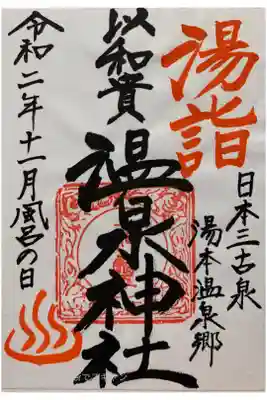 湯詣
日本三古泉
湯本温泉郷
以和貴
温泉神社
令和二年十一月風呂の日